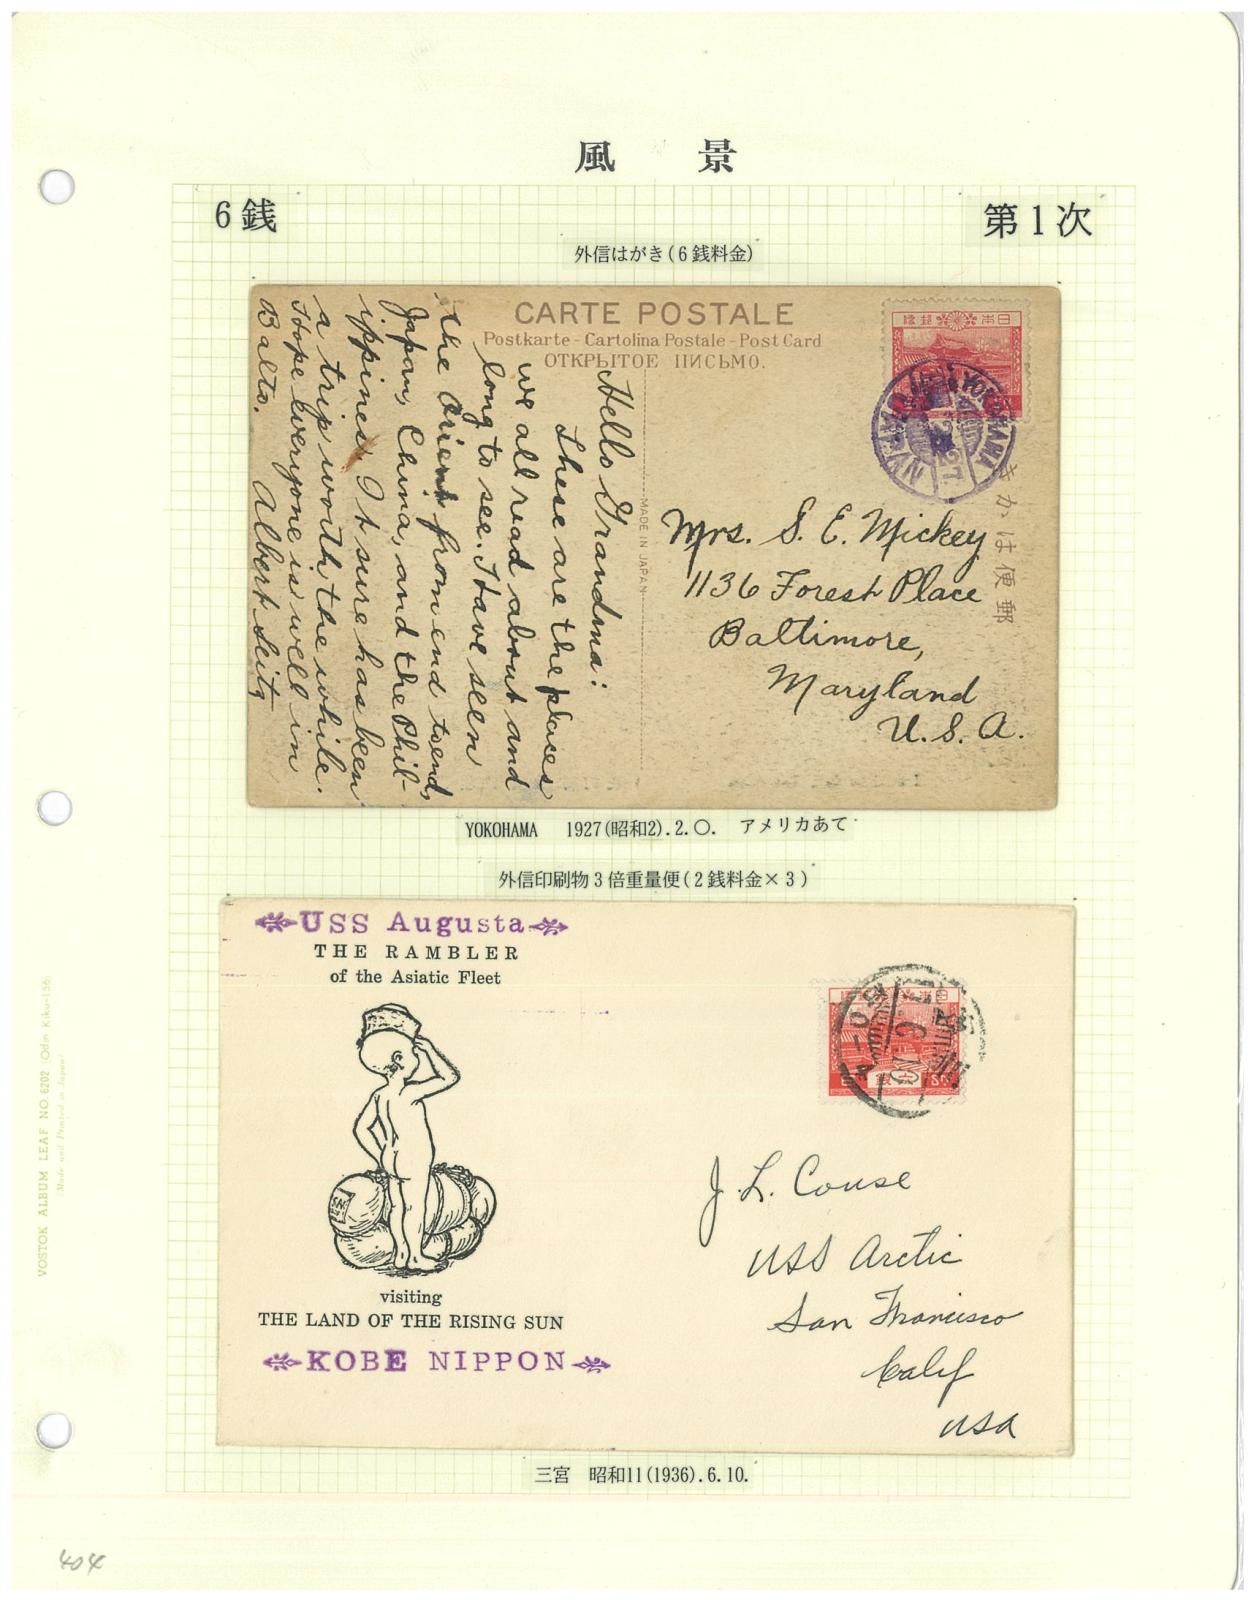 風 景
6銭
第1次
外信はがき(6銭料金)
CARTE POSTALE
Postkarte - Cartolina Postale - Post Card
ОТКРЫТОЕ ПИСЬМО.
日本郵便
YOKOHAMA
JAPAN
Hello Grandma:
These are the places
we all read about and
long to see. I have seen
the Orient from end to end,
Japan, China, and the Phil-
ippines. It sure has been
a trip worth the while.
Hope everyone is well in
Balto.
Albert Seitz
MADE IN JAPAN
郵便はかき
Mrs. S. E. Mickey
1136 Forest Place
Baltimore,
Maryland
U. S. A.
YOKOHAMA 1927(昭和2).2.○. アメリカあて
外信印刷物3倍重量便(2銭料金×3)
USS Augusta
THE RAMBLER
of the Asiatic Fleet
visiting
THE LAND OF THE RISING SUN
KOBE NIPPON
日本郵便
J. L. Couse
USS Arctic
San Francisco
Calif
USA
三宮 昭和11(1936).6.10.
VOSTOK ALBUM LEAF NO.6202 (Odm Kiku-156
(Made and Printed in Japan)
404